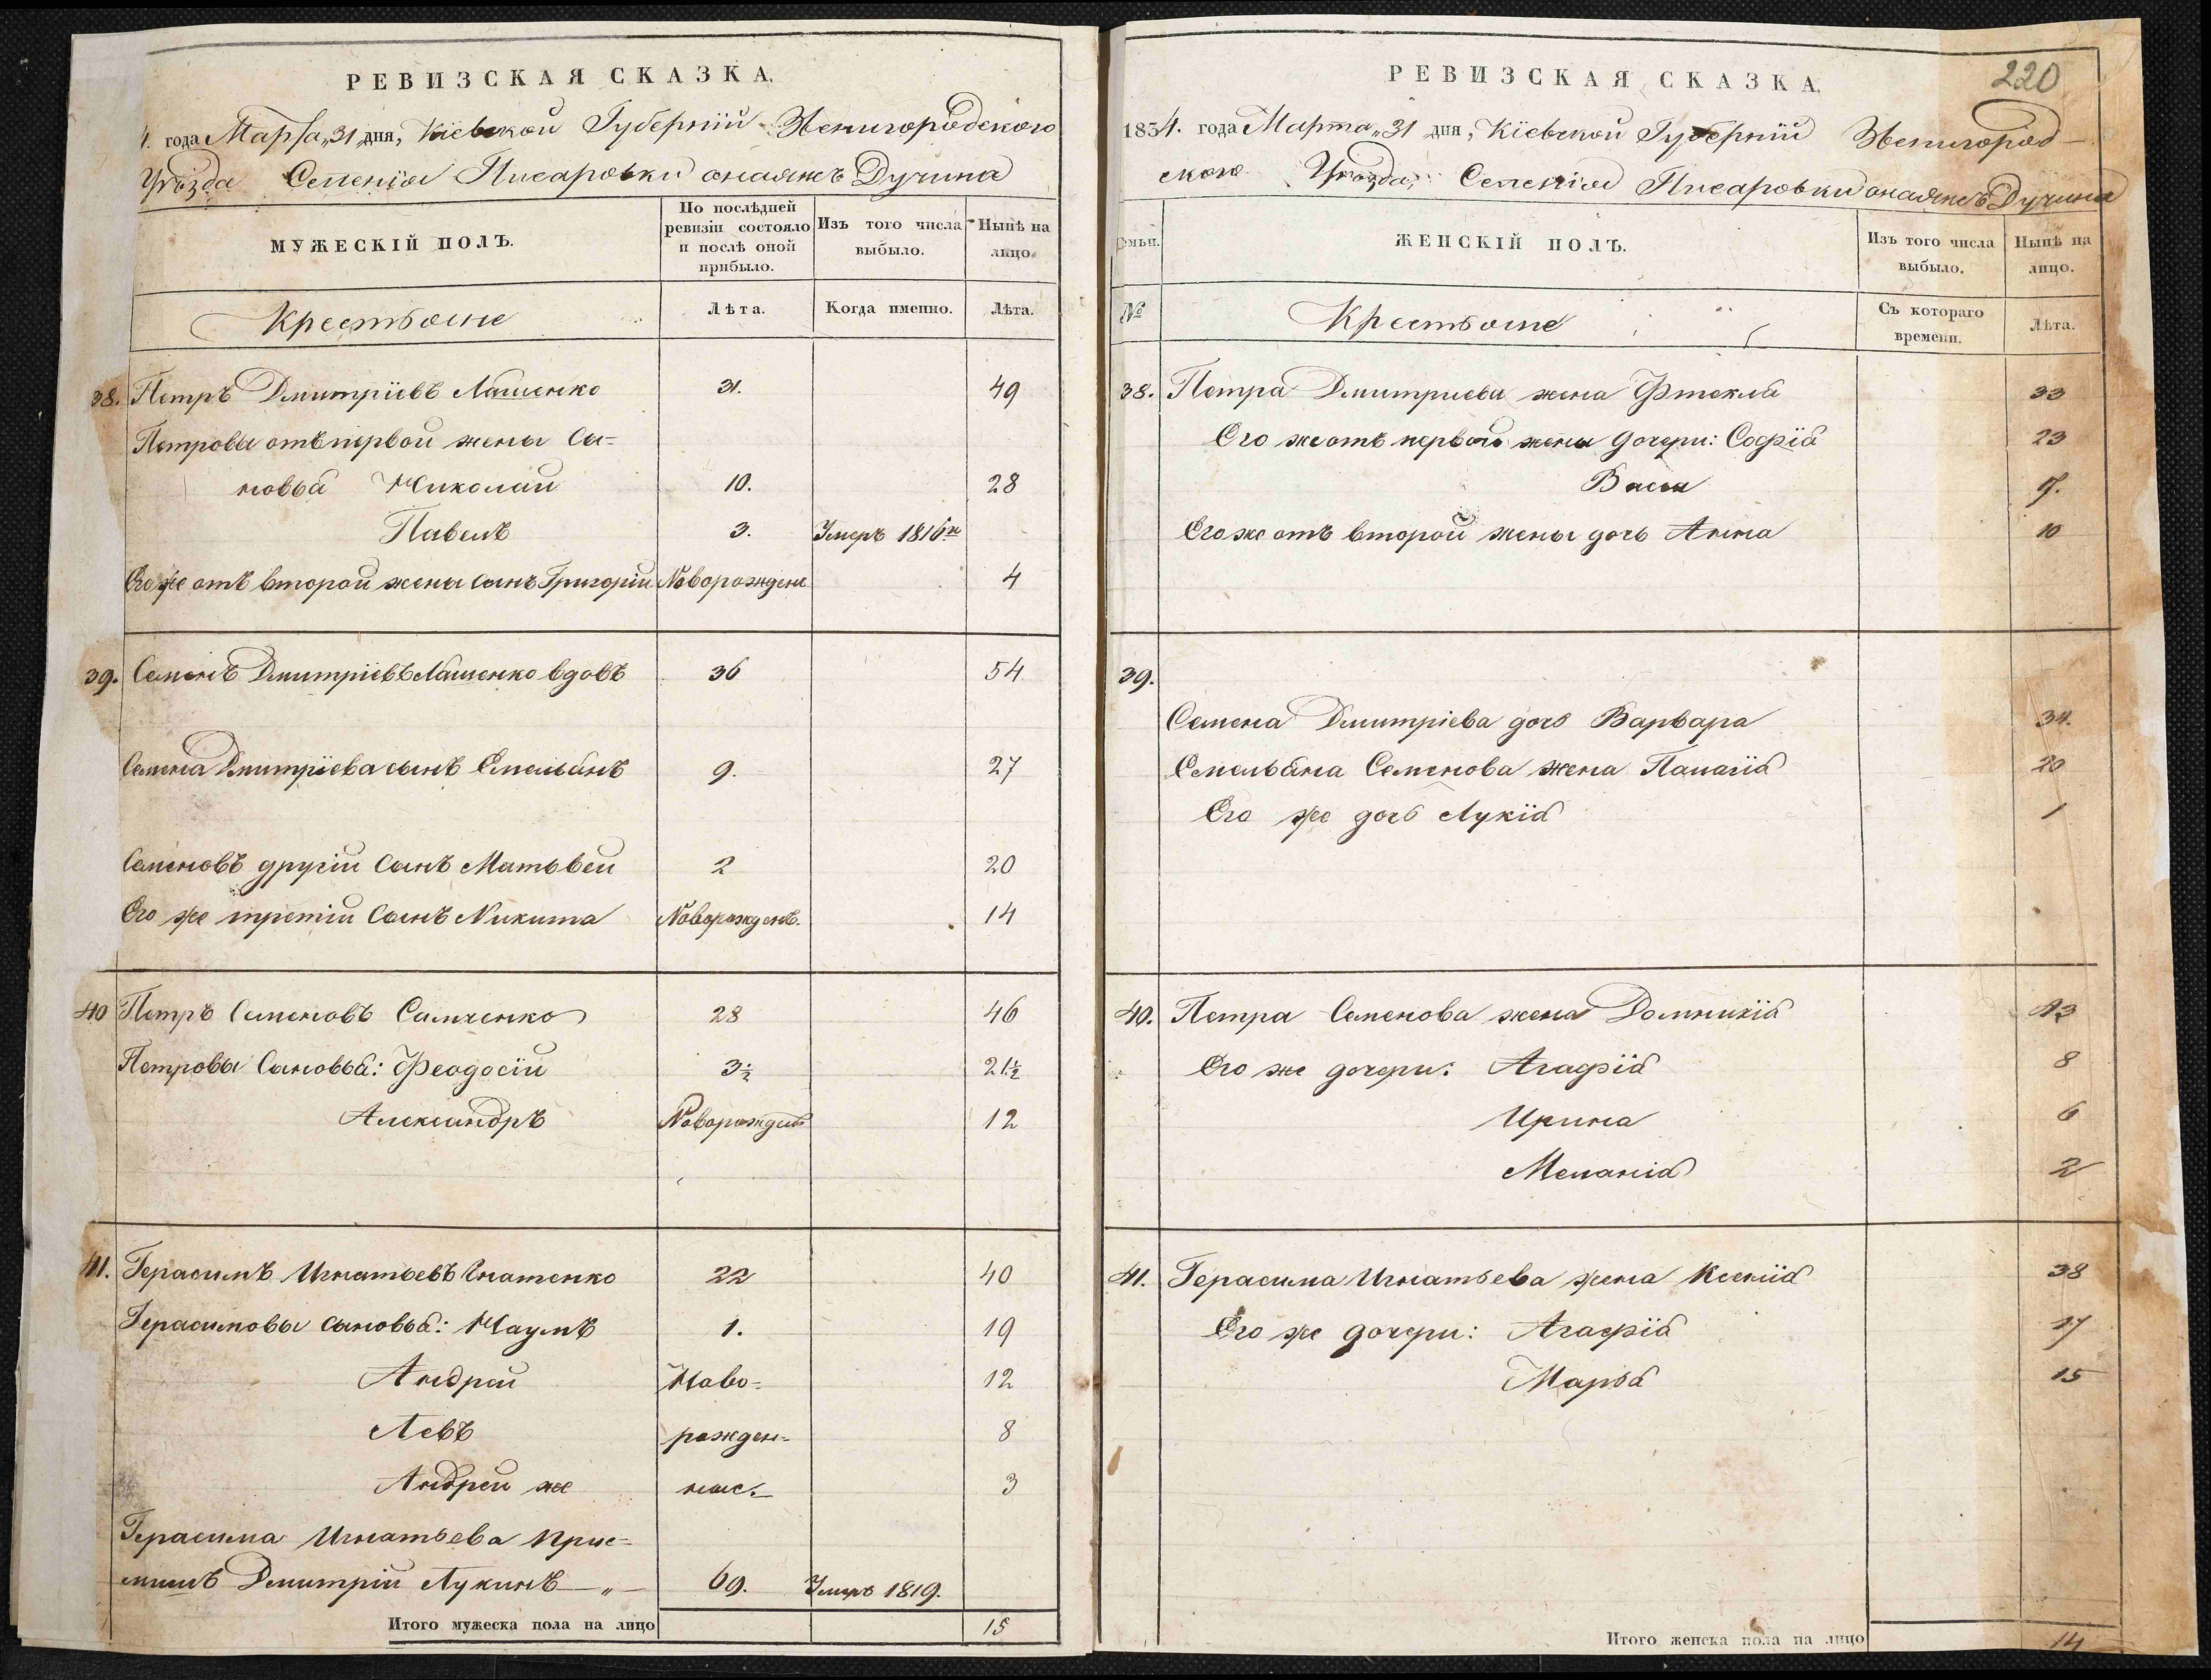 РЕВИЗСКАЯ СКАЗКА.
4. года Марта „31 дня, Кіевской Губерніи Звенигородского
Уѣзда Селенія Писаровки онаяжъ Дучина
МУЖЕСКІЙ ПОЛЪ.
По послѣдней ревизіи состояло и послѣ оной прибыло.
Изъ того числа выбыло.
Нынѣ на лицо.
Крестьяне
Лѣта.
Когда именно.
Лѣта.
38. Петръ Дмитріевъ 31. 49
Петровы отъ первой жены сы=
новья Николай 10. 28
Павелъ 3. Умеръ 1816
Его же отъ второй жены сынъ Григорій Новорожден 4
39. Семенъ Дмитріевъ вдовъ 36 54
Семена Дмитріева сынъ Емельянъ 9. 27
Семеновъ другій сынъ Матьвей 2 20
Его же третій сынъ Никита Новорожденъ. 14
40 Петръ Семеновъ Самченко 28 46
Петровы сыновья: Феодосій 3½ 21½
Александръ Новорожден 12
41. Герасимъ Игнатьевъ Гнатенко 22 40
Герасимовы сыновья: Наумъ 1. 19
Андрей Ново= 12
Левъ рожден= 8
Андрей же ные. 3
Герасима Игнатьева прие=
мышъ Дмитрій Лукинъ — „ — 69. Умеръ 1819.
Итого мужеска пола на лицо 15
220
РЕВИЗСКАЯ СКАЗКА.
1834. года Марта „31 дня, Кіевской Губерніи Звенигород—
ского Уѣзда, Селенія Писаровки онаяжъ Дучина
Семьи.
ЖЕНСКІЙ ПОЛЪ.
Изъ того числа выбыло.
Нынѣ на лицо.
№
Крестьяне
Съ котораго времени.
Лѣта.
38. Петра Дмитриева жена Фтекла 33
Его же отъ первой жены дочери: Софія 23
Васса 7.
Его же отъ второй жены дочь Анна 10
39.
Семена Дмитріева дочь Варвара 34.
Емельяна Семенова жена Палагія 20
Его же дочь Лукія 1
40. Петра Семенова жена Домникія 43
Его же дочери: Агафія 8
Ирина 6
Меланія 2
41. Герасима Игнатьева жена Ксенія 38
Его же дочери: Агафія 17
Марья 15
Итого женска пола на лицо 14